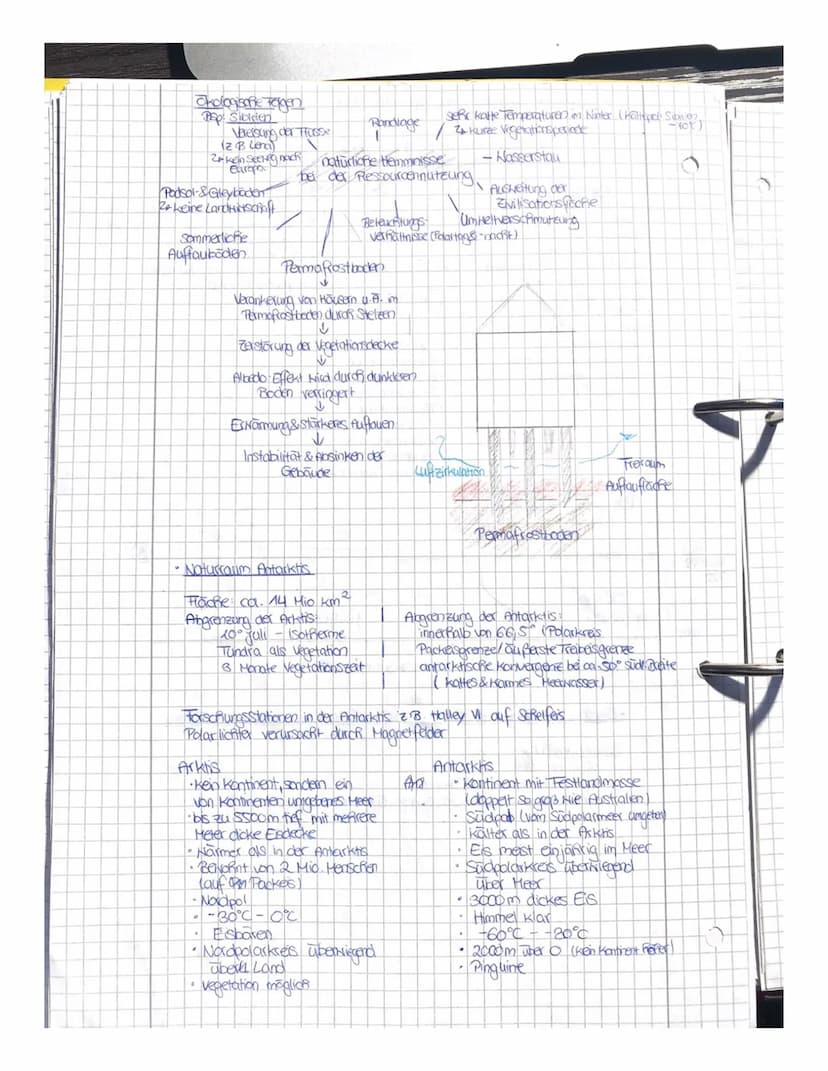 Ökologische Folgen
Bsp: Sibirien
Vereisung der Flüsse
(z B Lena)
↳ kein Seeweg nach
Europa
Randlage
sehr kalte Temperaturen im Winter (Kältepol Sibirien
-70°C)
↳ kurze Vegetationsperiode
natürliche Hemmnisse
bei der Ressourcennutzung
- Wasserstau
Ausweitung der
Zivilisationsfläche
Umweltverschmutzung
Beleuchtungs-
verhältnisse (Polartag & -nacht)
Podsol- & Gleyböden
↳ keine Landwirtschaft
sommerliche
Auftauböden
Permafrostboden
↓
Verankerung von Häusern o. Ä. in
Permafrostboden durch Stelzen
↓
Zerstörung der Vegetationsdecke
↓
Albedo-Effekt wird durch dunkleren
Boden verringert
↓
Erwärmung & stärkeres Auftauen
↓
Instabilität & Absinken der
Gebäude
Luftzirkulation
Freiraum
Auftaufläche
Permafrostboden
· Naturraum Antarktis
Fläche: ca. 14 Mio km²
Abgrenzung der Arktis:
10° Juli - Isotherme
Tundra als Vegetation
3 Monate Vegetationszeit
Abgrenzung der Antarktis:
innerhalb von 66,5° (Polarkreis
Packeisgrenze / äußerste Treibeisgrenze
antarktische Konvergenz bei ca. 50° südl. Breite
(kaltes & warmes Meerwasser)
Forschungsstationen in der Antarktis z B Halley VI auf Schelfeis
Polarlichter verursacht durch Magnetfelder
Arktis
· kein Kontinent, sondern ein
von Kontinenten umgebenes Meer
· bis zu 5500m tief mit mehrere
Meter dicke Eisdecke
· Wärmer als in der Antarktis
· Bewohnt von 2 Mio. Menschen
(auf Packeis)
· Nordpol
· -30°C - 0°C
· Eisbären
· Nordpolarkreis überwiegend
über Land
· Vegetation möglich
Antarktis
· Kontinent mit Festlandmasse
(doppelt so groß wie Australien)
· Südpol (vom Südpolarmeer umgeben)
· Kälter als in der Arktis
· Eis meist einjährig im Meer
· Südpolarkreis überwiegend
über Meer
· 3000m dickes Eis
· Himmel klar
· -60°C - -20°C
· 2000m über 0 (kein Kontinent höher)
· Pinguine